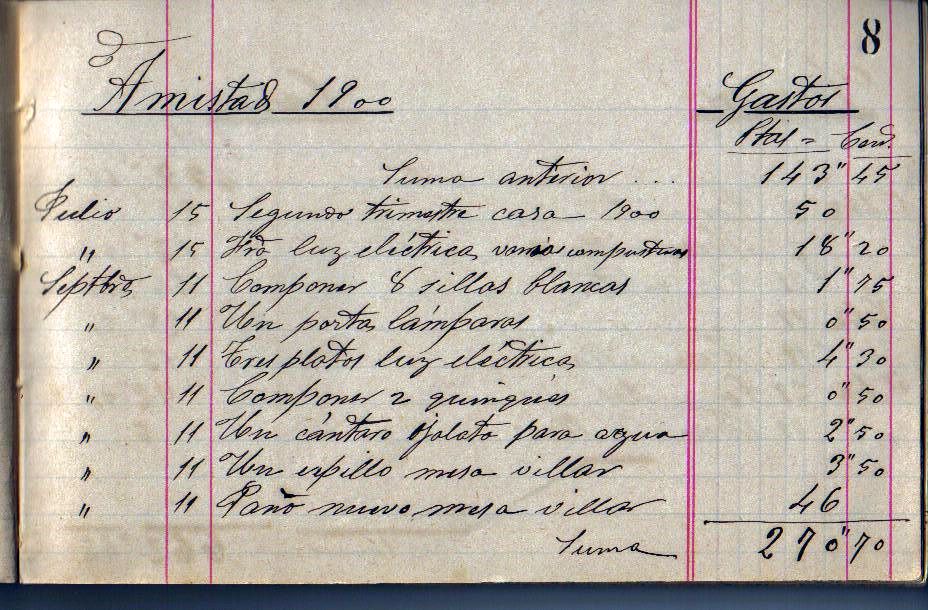 8
Amistad 1900 Gastos
Ptas = Cent.
Suma anterior .... 143" 45
Julio 15 Segundo trimestre casa 1900 50
" 15 luz eléctrica varias composturas 18" 20
Septbre 11 Componer 8 sillas blancas 1" 75
" 11 Un porta lámparas 0" 50
" 11 Tres platos luz eléctrica 4" 30
" 11 Componer 2 quinqués 0" 50
" 11 Un cántaro ojalata para agua 2" 50
" 11 Un cepillo mesa villar 3" 50
" 11 Paño nuevo mesa villar 46
Suma 270" 70